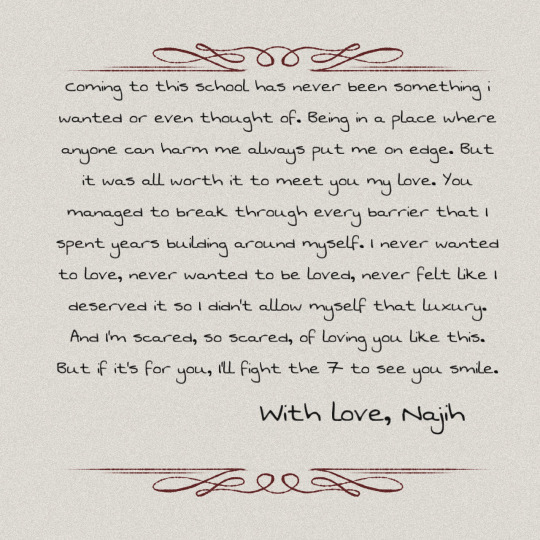 Coming to this school has never been something i
wanted or even thought of. Being in a place where
anyone can harm me always put me on edge. But
it was all worth it to meet you my love. You
managed to break through every barrier that I
spent years building around myself. I never wanted
to love, never wanted to be loved, never felt like I
deserved it so I didn't allow myself that luxury.
And I'm scared, so scared, of loving you like this.
But if it's for you, I'll fight the 7 to see you smile.
With love, Najih